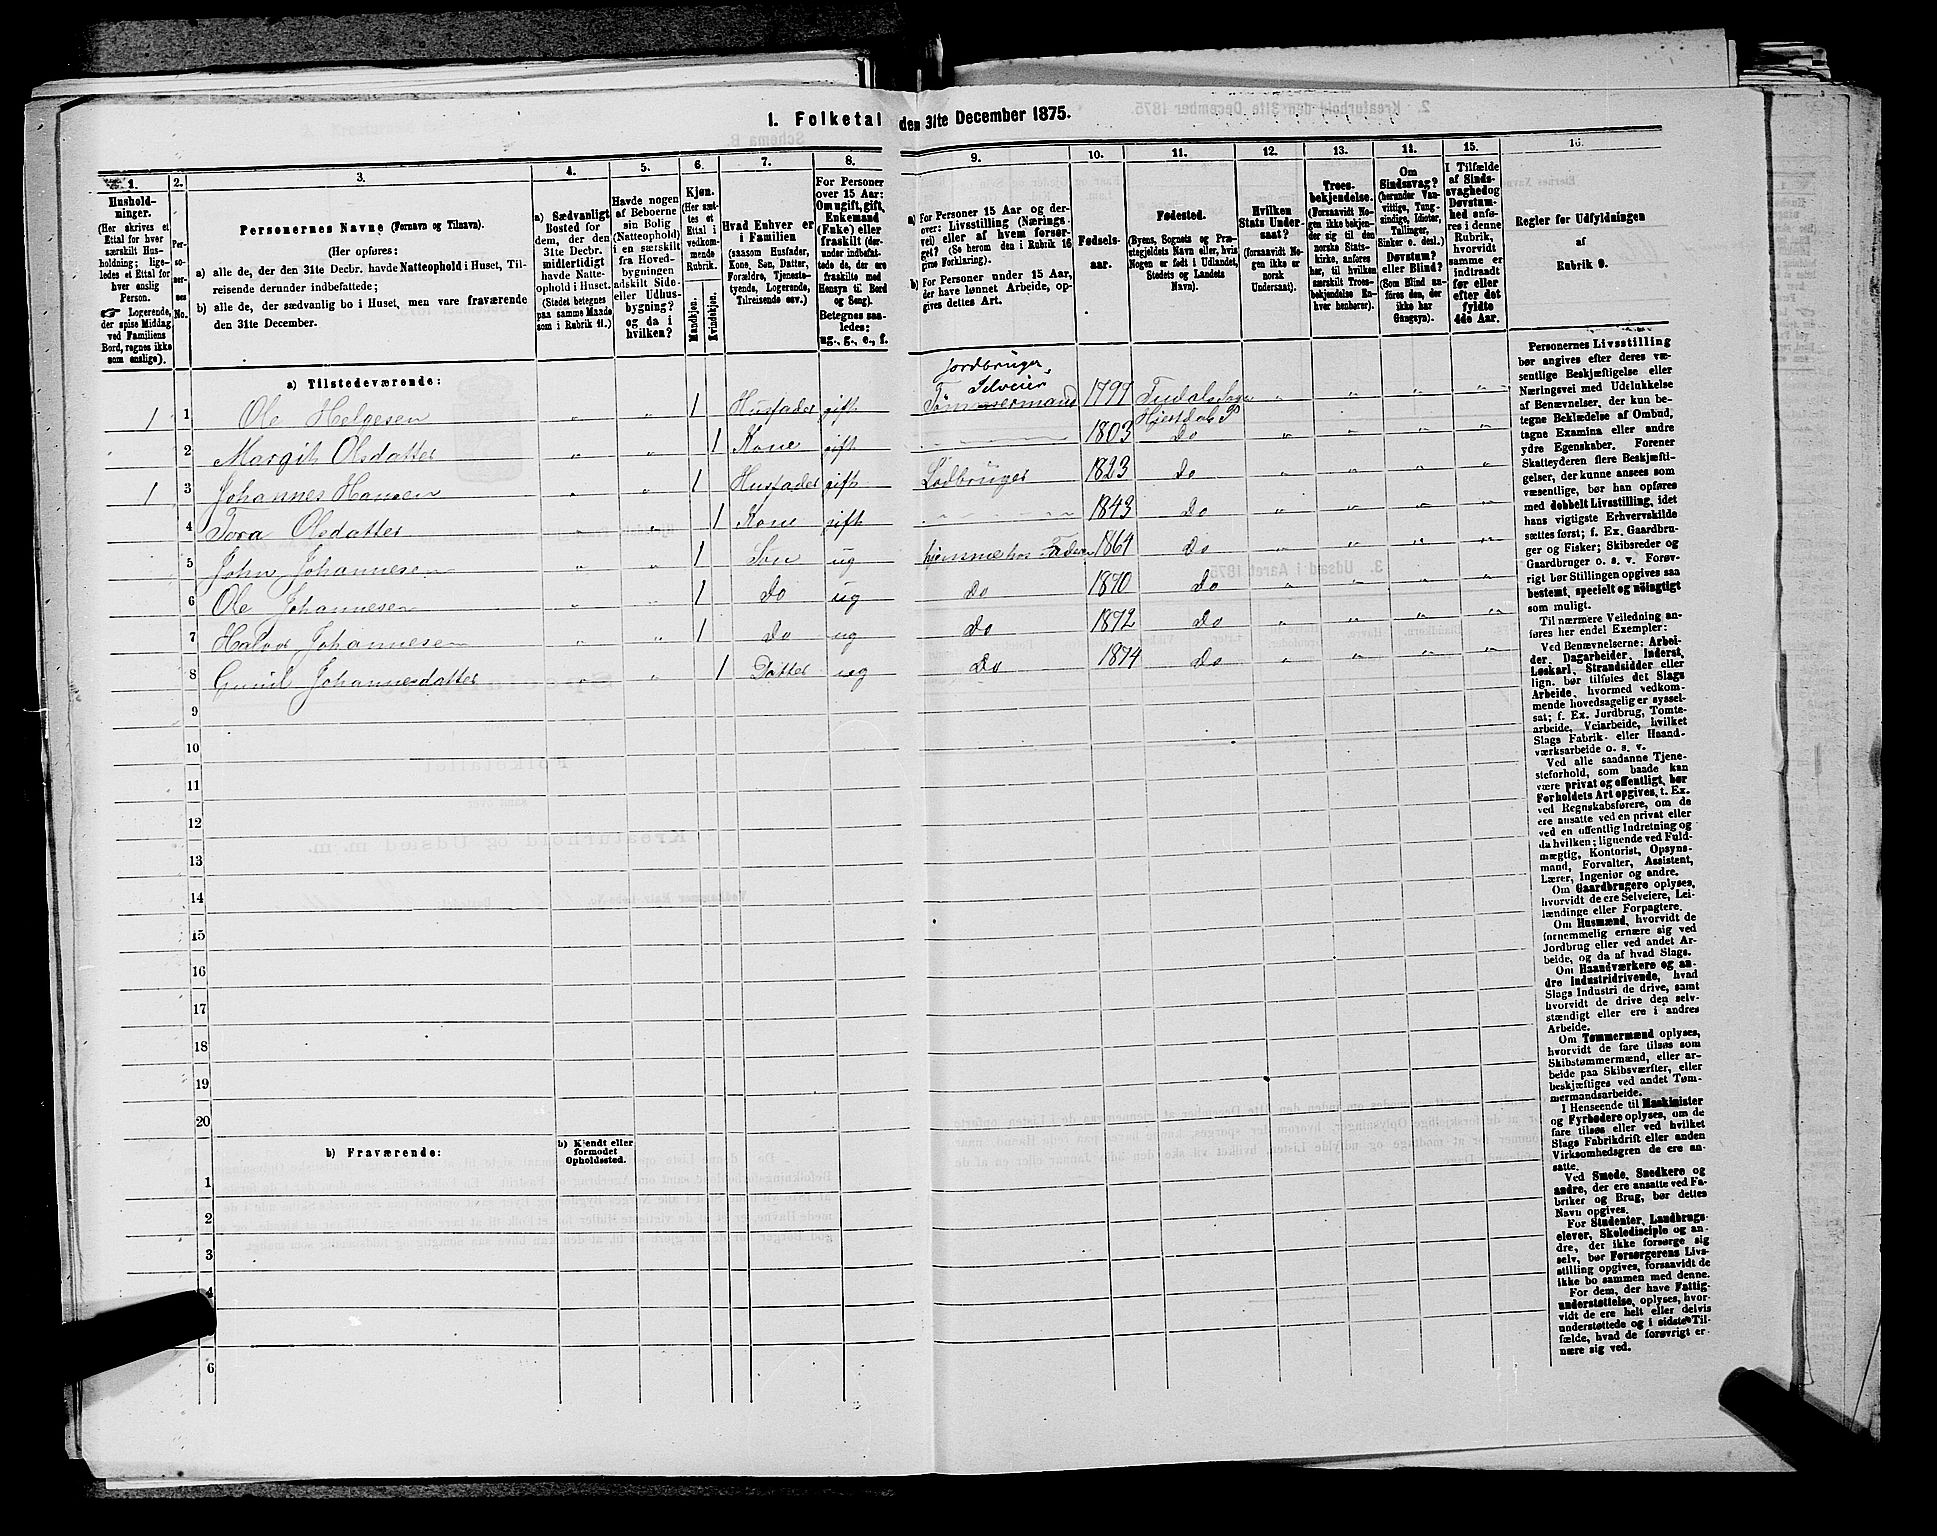 1. Folketal den 31te December 1875.
1.
Husholdninger.
(Her skrives et
Ettal for hver
særskilt Husholdning; ligeledes et Ettal for
hver enslig
Person.
☞ Logerende,
der spise Middag
ved Familiens
Bord, regnes ikke
som enslige).
2.
Personernes No.
3.
Personernes Navne (Fornavn og Tilnavn).
(Her opføres:
a) alle de, der den 31te Decbr. havde Natteophold i Huset, Tilreisende derunder indbefattede;
b) alle de, der sædvanlig bo i Huset, men vare fraværende
den 31te December.
4.
a) Sædvanligt
Bosted for
dem, der den
31te Decbr.
midlertidigt
havde Natteophold i Huset.
(Stedet betegnes
paa samme Maade
som i Rubrik 11.)
5.
Havde nogen
af Beboerne
sin Bolig
(Natteophold)
i en særskilt
fra Hovedbygningen
adskilt Side-
eller Udhusbygning?
og da i
hvilken?
6.
Kjøn.
(Her sættes et
Ettal i
vedkommende
Rubrik.
Mandkjøn.
Kvindekjøn.
7.
Hvad Enhver er
i Familien
(saasom Husfader,
Kone, Søn, Datter,
Forældre, Tjenestetyende, Logerende,
Tilreisende osv.)
8.
For Personer
over 15 Aar:
Om ugift, gift,
Enkemand
(Enke) eller
fraskilt (derunder indbefattede de, der ere
fraskilte med
Hensyn til Bord
og Seng).
Betegnes saaledes:
ug., g., e., f.
9.
a) For Personer 15 Aar og derover: Livsstilling (Næringsvei) eller af hvem forsørget? (Se herom den i Rubrik 16
givne Forklaring).
b) For Personer under 15 Aar,
der have lønnet Arbeide, opgives dettes Art.
10.
Fødselsaar.
11.
Fødested.
(Byens, Sognets og Præstegjeldets Navn eller, hvis
Nogen er født i Udlandet,
Stedets og Landets
Navn).
12.
Hvilken
Stats Undersaat?
(forsaavidt Nogen ikke er
norsk
Undersaat).
13.
Troesbekjendelse.
(Forsaavidt Nogen ikke bekjender sig til den
norske Statskirke, anføres
her, til hvilken
særskilt Troesbekjendelse Enhver henhører).
14.
Om
Sindssvag?
(herunder Vanvittige, Tungsindige, Idioter,
Tullinger,
Sinker o. desl.)
Døvstum?
eller Blind?
(Som Blind anføres den, der
ikke har
Gangsyn).
15.
I Tilfælde
af Sindssvaghed og
Døvstumhed anføres i denne
Rubrik,
hvorvidt
samme er
indtraadt
før eller
efter det
fyldte
4de Aar.
16.
Regler for Udfyldningen
af
Rubrik 9.
a) Tilstedeværende:
Jordbruger,
Selveier
1 1 Ole Helgesen „ „ 1 Husfader gift Tømmermand 1797 Tudals Sogn „ „ „ „
Hjertdals P
2 Margit Olsdatter „ „ 1 Kone gift 1803 Do „ „ „ „
1 3 Johannes Hansen „ „ 1 Husfader gift Lødbruger 1823 Do „ „ „ „
4 Tora Olsdatter „ „ 1 Kone gift 1843 Do „ „ „ „
5 John Johannesen „ „ 1 Søn ug hjemme hos Faderen 1864 Do „ „ „ „
6 Ole Johannesen „ „ 1 Do ug Do 1870 Do „ „ „ „
7 Halvor Johannesen „ „ 1 Do ug Do 1872 Do „ „ „ „
8 Gunil Johannesdatter „ „ 1 Datter ug Do 1874 Do „ „ „ „
9
10
11
12
13
14
15
16
17
18
19
20
b) Fraværende:
b) Kjendt eller
formodet
Opholdssted.
1
2
3
4
6
Personernes Livsstilling
bør angives efter deres væsentlige Beskjæftigelse eller
Næringsvei med Udelukkelse
af Benævnelser, der kun betegne Beklædelse af Ombud,
tagne Examina eller andre
ydre Egenskaber. Forener
Skatteyderen flere Beskjæftigelser, der kunne ansees som
væsentlige, bør han opføres
med dobbelt Livsstilling, idet
hans vigtigste Erhvervskilde
sættes først; f. Ex. Gaardbruger og Fisker; Skibsreder og
Gaardbruger o. s. v. Forøvrigt bør Stillingen opgives saa
bestemt, specielt og nöiagtigt
som muligt.
Til nærmere Veiledning anføres her endel Exempler:
Ved Benævnelserne: Arbeider, Dagarbeider, Inderst,
Løskarl, Strandsidder eller
lign. bør tilføies det Slags
Arbeide, hvormed vedkommende hovedsagelig er sysselsat; f. Ex. Jordbrug, Tomtearbeide, Veiarbeide, hvilket
Slags Fabrik- eller Haandværksarbeide o. s. v.
Ved alle saadanne Tjenesteforhold, som baade kan
være privat og offentligt, bør
Forholdets Art opgives, t. Ex.
ved Regnskabsførere, om de
ere ansatte ved en privat eller
ved en offentlig Indretning og
da hvilken; lignende ved Fuldmægtig, Kontorist, Opsynsmand, Forvalter, Assistent,
Lærer, Ingeniør og andre.
Om Gaardbrugere oplyses,
hvorvidt de ere Selveiere, Leilændinge eller Forpagtere.
Om Husmænd, hvorvidt de
fornemmelig ernære sig ved
Jordbrug eller ved andet Arbeide, og da af hvad Slags.
Om Haandværkere og andre Industridrivende, hvad
Slags Industri de drive, samt
hvorvidt de drive den selvstændigt eller ere i andres
Arbeide.
Om Tømmermænd oplyses,
hvorvidt de fare tilsøs som
Skibstømmermænd, eller arbeide paa Skibsværfter, eller
beskjæftiges ved andet Tømmermandsarbeide.
I Henseende til Maskinister
og Fyrbødere oplyses, om de
fare tilsøs eller ved hvilket
Slags Fabrikdrift eller anden
Virksomhedsgren de ere ansatte.
Ved Smede, Snedkere og
andre, der ere ansatte ved Fabriker og Brug, bør dettes
Navn opgives.
For Studenter, Landbrugselever, Skoledisciple og andre, der ikke forsørge sig
selv, bør Forsørgerens Livsstilling opgives, forsaavidt de
ikke bo sammen med denne.
For dem, der have Fattigunderstøttelse, oplyses, hvorvidt de ere helt eller delvis
understøttede og i sidste Tilfælde, hvad de forøvrigt ernære sig ved.